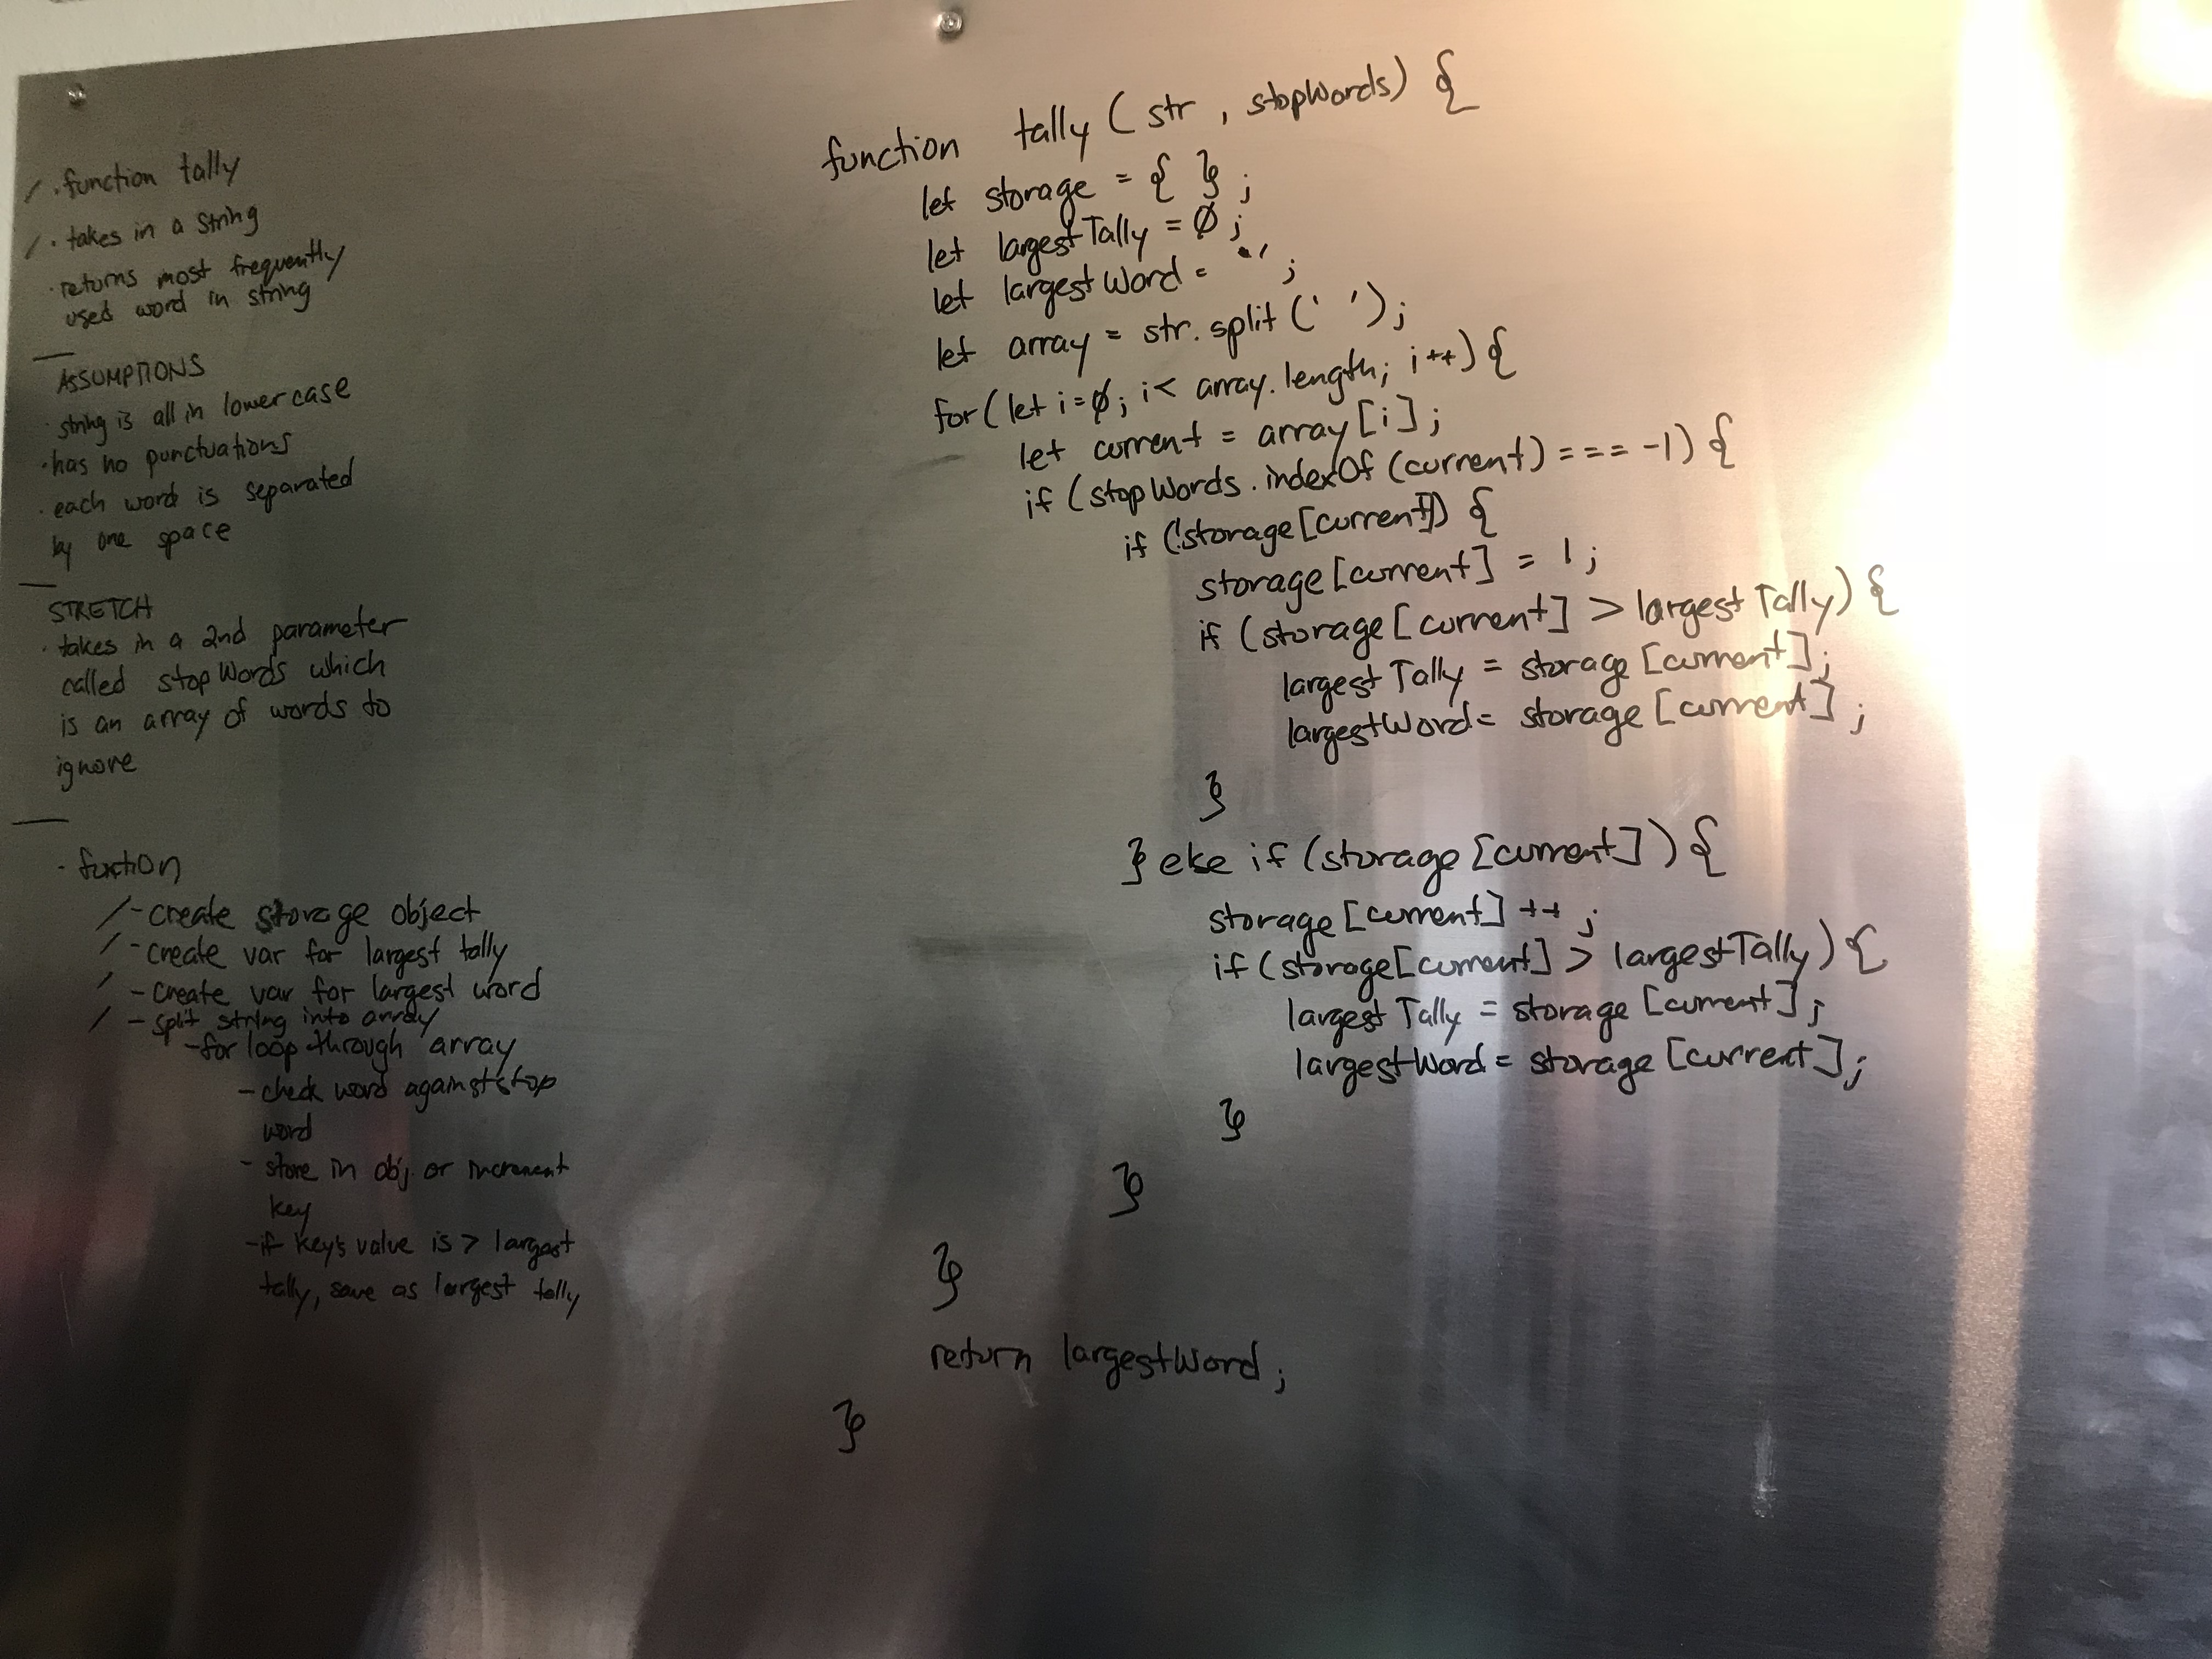 / . function tally
/ . takes in a string
. returns most frequently
used word in string
ASSUMPTIONS
. string is all in lower case
. has no punctuations
. each word is separated
by one space
STRETCH
. takes in a 2nd parameter
called stopWords which
is an array of words to
ignore
- function
/ - create storage object
/ - create var for largest tally
/ - create var for largest word
/ - split string into array
- for loop through array
- check word against stop
word
- store in obj. or increment
key
- if key's value is > largest
tally, save as largest tally
function tally ( str , stopWords) {
let storage = { } ;
let largestTally = 0 ;
let largestWord = '' ;
let array = str. split (' ');
for ( let i=0; i< array. length; i++) {
let current = array [i] ;
if ( stopWords . indexOf (current) === -1) {
if (!storage [current]) {
storage [current] = 1 ;
if (storage [current] > largestTally) {
largestTally = storage [current] ;
largestWord = storage [current] ;
}
} else if (storage [current] ) {
storage [current] ++ ;
if (storage[current] > largestTally) {
largestTally = storage [current] ;
largestWord = storage [current] ;
}
}
}
return largestWord ;
}